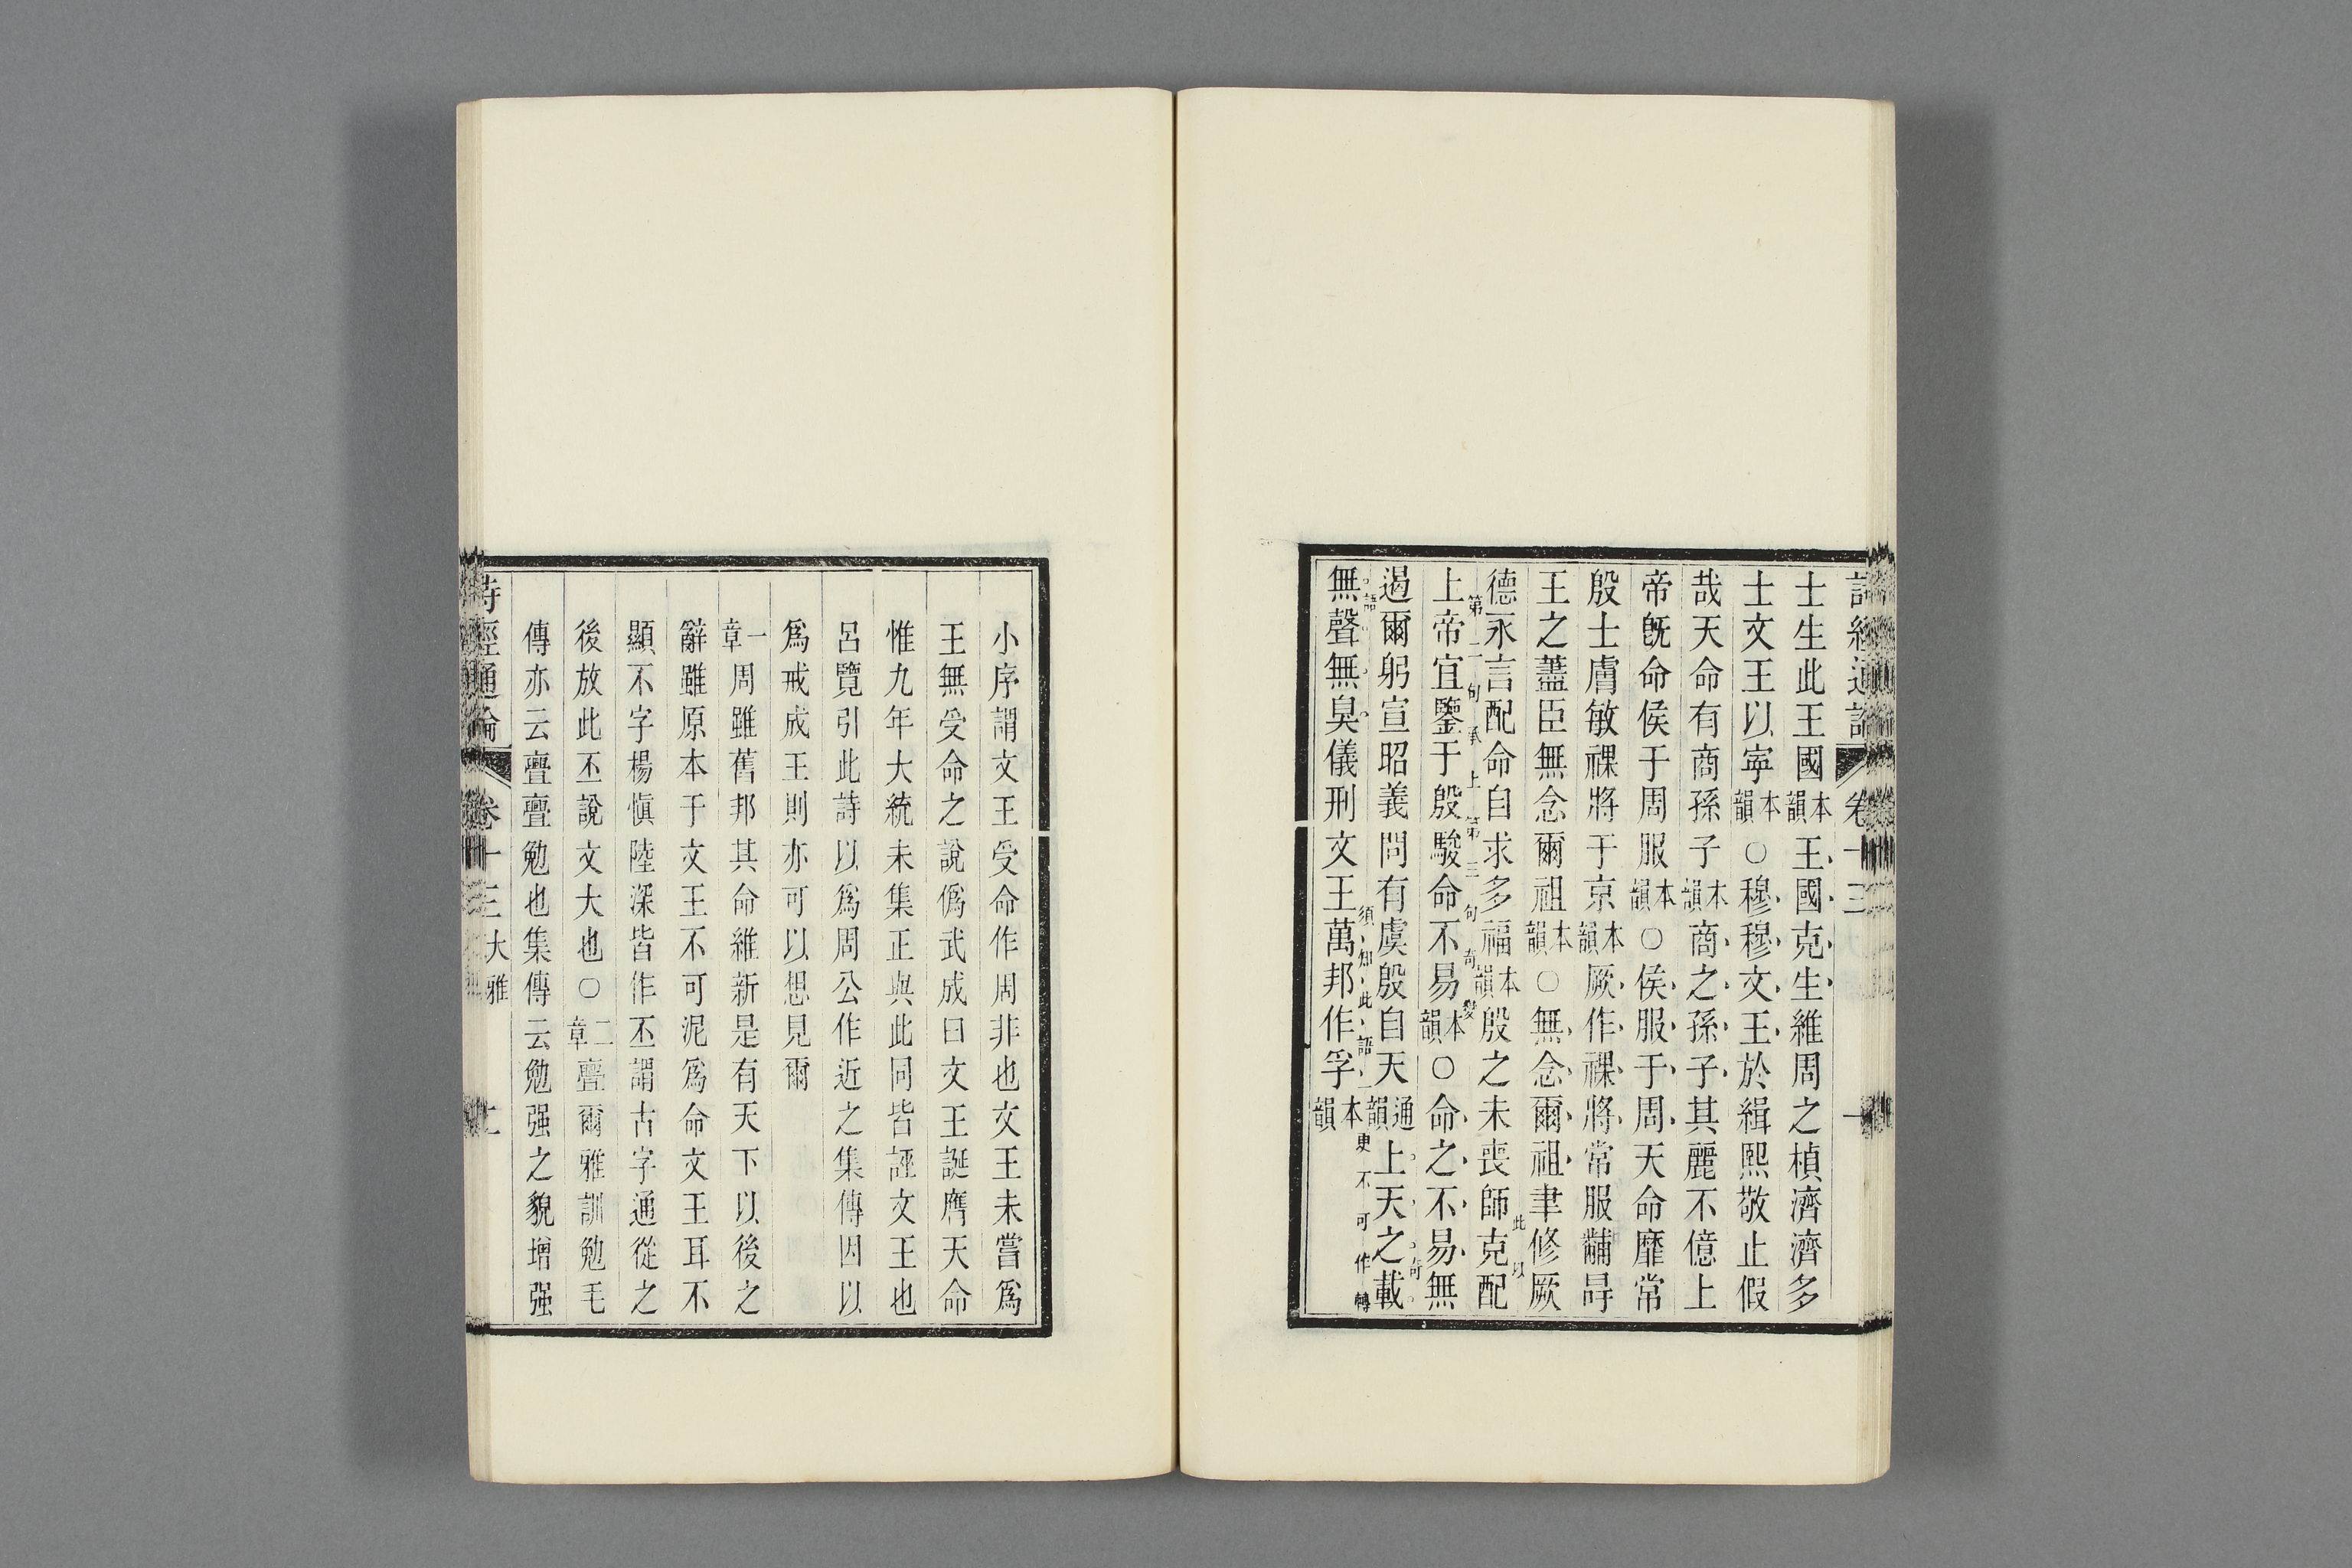 詩經通論 卷十三
士生此王國本韻王國克生維周之楨濟濟多
士文王以寧本韻○穆穆文王於緝熙敬止假
哉天命有商孫子本韻商之孫子其麗不億上
帝旣命侯于周服本韻○侯服于周天命靡常
殷士膚敏祼將于京本韻厥作祼將常服黼冔
王之藎臣無念爾祖本韻○無念爾祖聿修厥
德永言配命自求多福本韻殷之未喪師克配
此以
上帝宜鑒于殷駿命不易本韻○命之不易無
第二句承上第三句奇變
遏爾躬宣昭義問有虞殷自天通韻上天之載
奇
無聲無臭儀刑文王萬邦作孚本韻
語須知此語更不可作轉
小序謂文王受命作周非也文王未嘗爲
王無受命之說僞武成曰文王誕膺天命
惟九年大統未集正與此同皆誣文王也
呂覽引此詩以爲周公作近之集傳因以
爲戒成王則亦可以想見爾
一章周雖舊邦其命維新是有天下以後之
辭雖原本于文王不可泥爲命文王耳不
顯不字楊愼陸深皆作丕謂古字通從之
後放此丕說文大也○二章亹爾雅訓勉毛
傳亦云亹亹勉也集傳云勉强之貌增强
詩經通論 卷十三 大雅 二